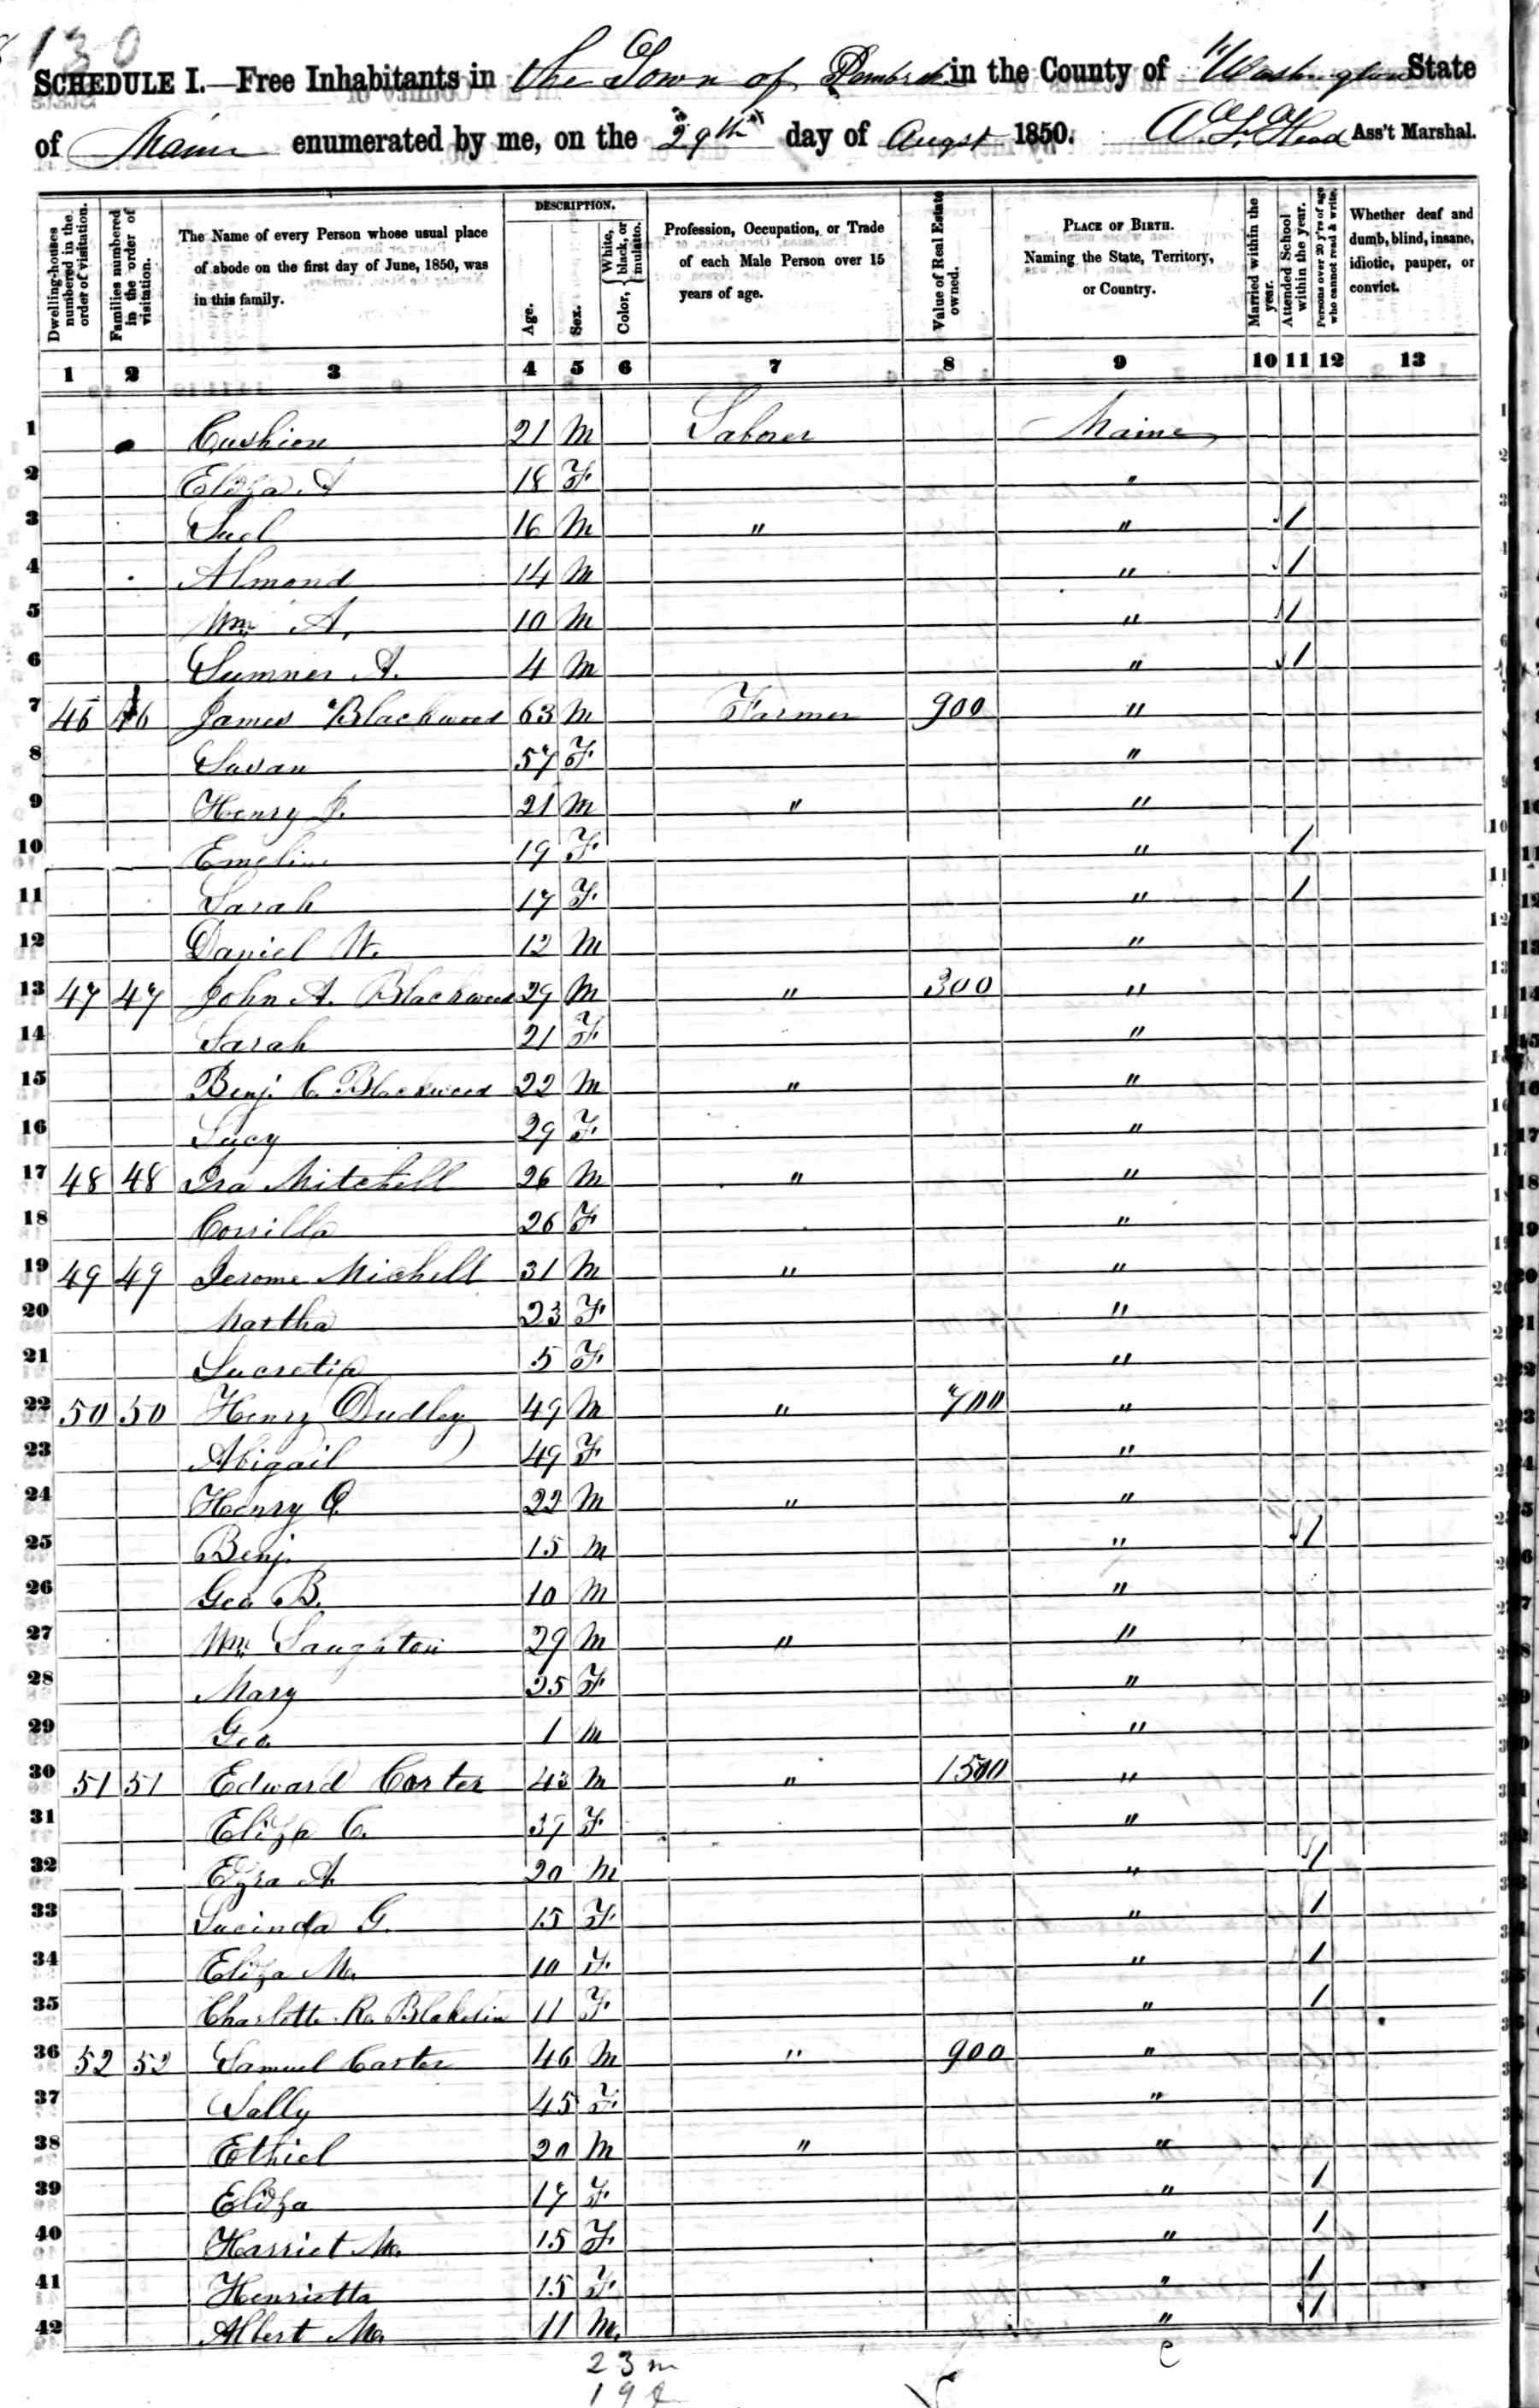 130
SCHEDULE I.—Free Inhabitants in the Town of Pembroke in the County of Washington State
of Maine enumerated by me, on the 29th day of Augst 1850. A. L. Head Ass't Marshal.
Dwelling-houses numbered in the order of visitation. Families numbered in the order of visitation. The Name of every Person whose usual place of abode on the first day of June, 1850, was in this family. DESCRIPTION. Age. Sex. Color, { White, black, or mulatto. Profession, Occupation, or Trade of each Male Person over 15 years of age. Value of Real Estate owned. PLACE OF BIRTH. Naming the State, Territory, or Country. Married within the year. Attended School within the year. Persons over 20 y'rs of age who cannot read & write. Whether deaf and dumb, blind, insane, idiotic, pauper, or convict.
1 2 3 4 5 6 7 8 9 10 11 12 13
1 Cushion 21 M Laborer Maine
2 Eliza A 18 F "
3 16 M " " 1
4 Almond 14 M " 1
5 Wm A. 10 M " 1
6 Sumner A. 4 M " 1
7 46 46 James Blackwood 63 M Farmer 900 "
8 Susan 57 F "
9 Henry J. 21 M " "
10 Emeline 19 F " 1
11 Sarah 17 F " 1
12 Daniel W. 12 M "
13 47 47 John A. Blackwood 29 M " 300 "
14 Sarah 21 F "
15 Benj. C. Blackwood 22 M " "
16 Lucy 29 F "
17 48 48 Ira Mitchell 26 M " "
18 Corrilla 26 F "
19 49 49 Jerome Michell 31 M " "
20 Martha 23 F "
21 Lucretia 5 F "
22 50 50 Henry Dudley 49 M " 700 "
23 Abigail 49 F "
24 Henry 22 M " "
25 Benj. 15 M " 1
26 Geo B. 10 M "
27 Wm Laughton 29 M " "
28 Mary 25 F "
29 Geo. 1 M "
30 51 51 Edward Carter 43 M " 1500 "
31 Eliza C. 37 F "
32 Ezra A 20 M " 1
33 Lucinda G. 15 F " 1
34 Eliza M. 10 F " 1
35 Charlotte R. 11 F " 1
36 52 52 Samuel Carter 46 M " 900 "
37 Sally 45 F "
38 Ethiel 20 M " "
39 Eliza 17 F " 1
40 Harriet M. 15 F " 1
41 Henrietta 15 F " 1
42 Albert M. 11 M. " 1
23 m
19 f